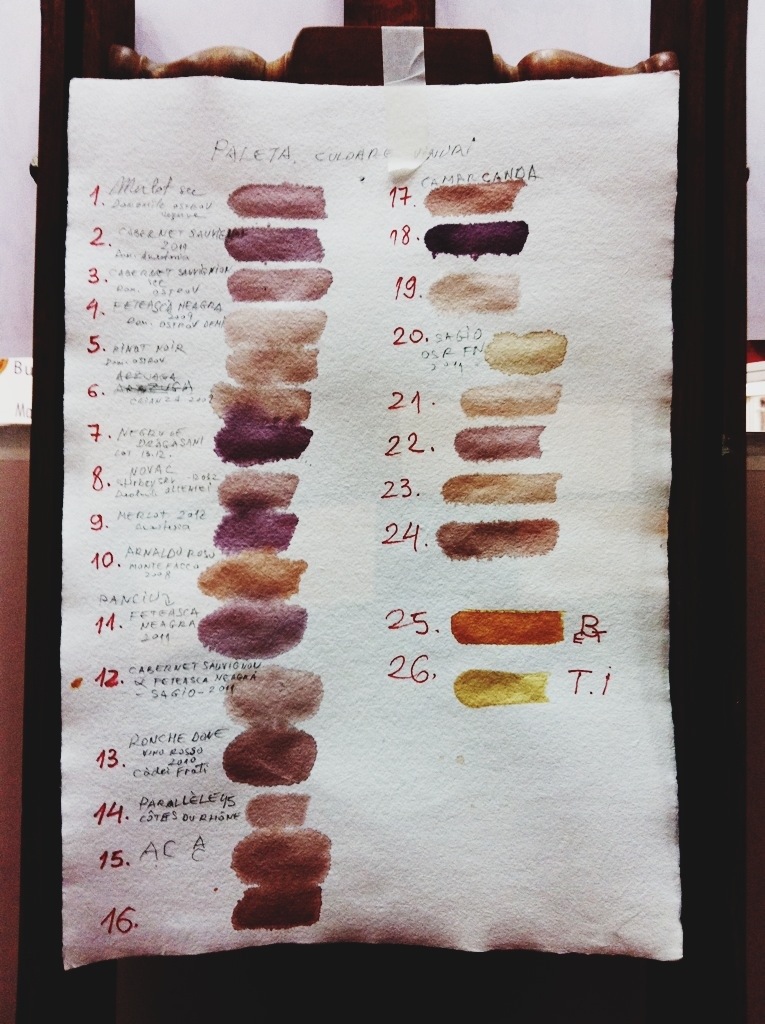 PALETA CULOARE VINURI
1. Merlot sec
Domeniile Ostrov
2. CABERNET SAUVIGNON
2011
3. CABERNET SAUVIGNION
SEC
DOM. OSTROV
4. FETEASCĂ NEAGRĂ
2009
DOM. OSTROV DEMI
5. PINOT NOIR
DOM. OSTROV
6. ARZUAGA
CRIANZA 2009
7. NEGRU DE
DRĂGĂȘANI
LOT 13.12.
8. NOVAC
9. MERLOT 2012
10. ARNALDO ROSO
MONTEFALCO
2008
PANCIU
11. FETEASCA
NEAGRA
2011
12. CABERNET SAUVIGNON
& FETEASCA NEAGRĂ
- SAGIO - 2011
13. RONCHE DONE
VINO ROSSO
2010
Cà dei Frati
14. PARALLÈLE 45
CÔTES DU RHÔNE
15. AC A
C
16.
17. CAMARCANDA
18.
19.
20. SAGIO
OSR FN
2011
21.
22.
23.
24.
25. B
ET
26. T.i